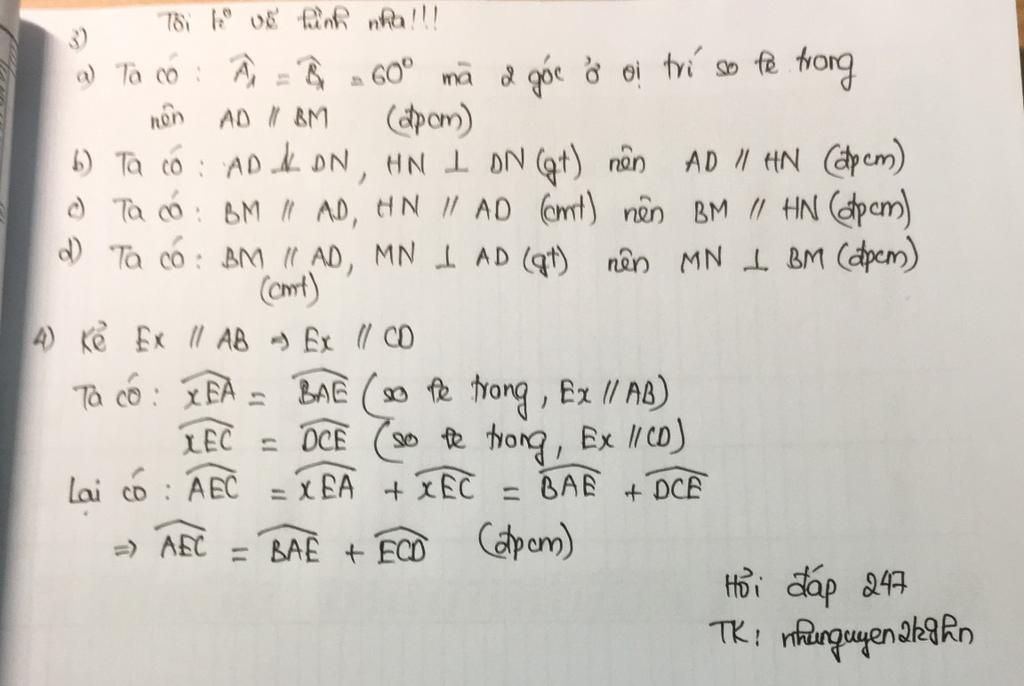 3) Tôi k° vẽ hình nha!!!
a) Ta có: Â₁ = B̂₁ = 60° mà 2 góc ở vị trí so le trong
nên AD // BM (đpcm)
b) Ta có: AD ⊥ DN, HN ⊥ DN (gt) nên AD // HN (đpcm)
c) Ta có: BM // AD, HN // AD (cmt) nên BM // HN (đpcm)
d) Ta có: BM // AD, MN ⊥ AD (gt) nên MN ⊥ BM (đpcm)
(cmt)
4) Kẻ Ex // AB => Ex // CD
Ta có: xEA = BAE (so le trong, Ex // AB)
xEC = DCE (so le trong, Ex // CD)
Lại có: AEC = xEA + xEC = BAE + DCE
=> AEC = BAE + ECD (đpcm)
Hỏi đáp 247
TK: